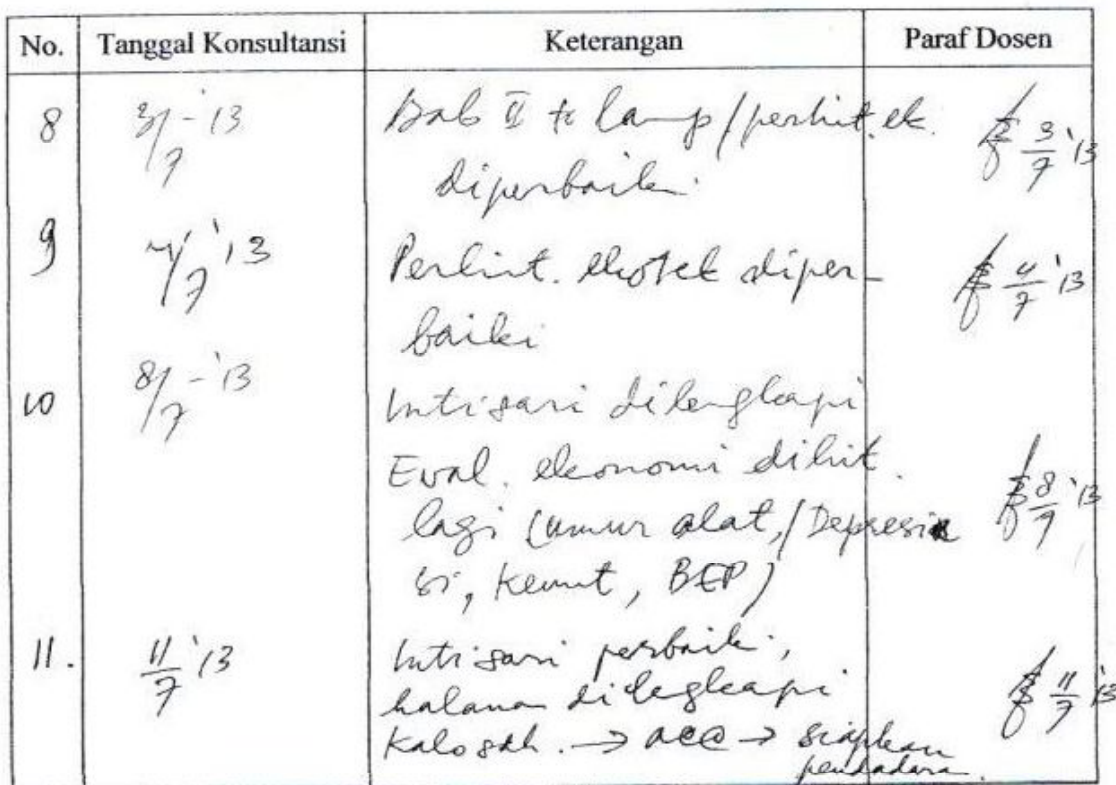 No. Tanggal Konsultansi Keterangan Paraf Dosen
8 3/7 - '13 Bab II & lamp/perhit. ek. 3/7 '13
diperbaiki.
9 4/7 '13 Perhit. ekotek diper- 4/7 '13
baiki
10 8/7 - '13 Intisari dilengkapi
Eval. ekonomi dihit.
lagi (umur alat,/Depresia 8/7 '13
si, Keunt, BEP)
11. 11/7 '13 Intisari perbaiki,
halaman dilegkapi 11/7 '13
Kalo sdh. → acc → siapkan
pendadaran.